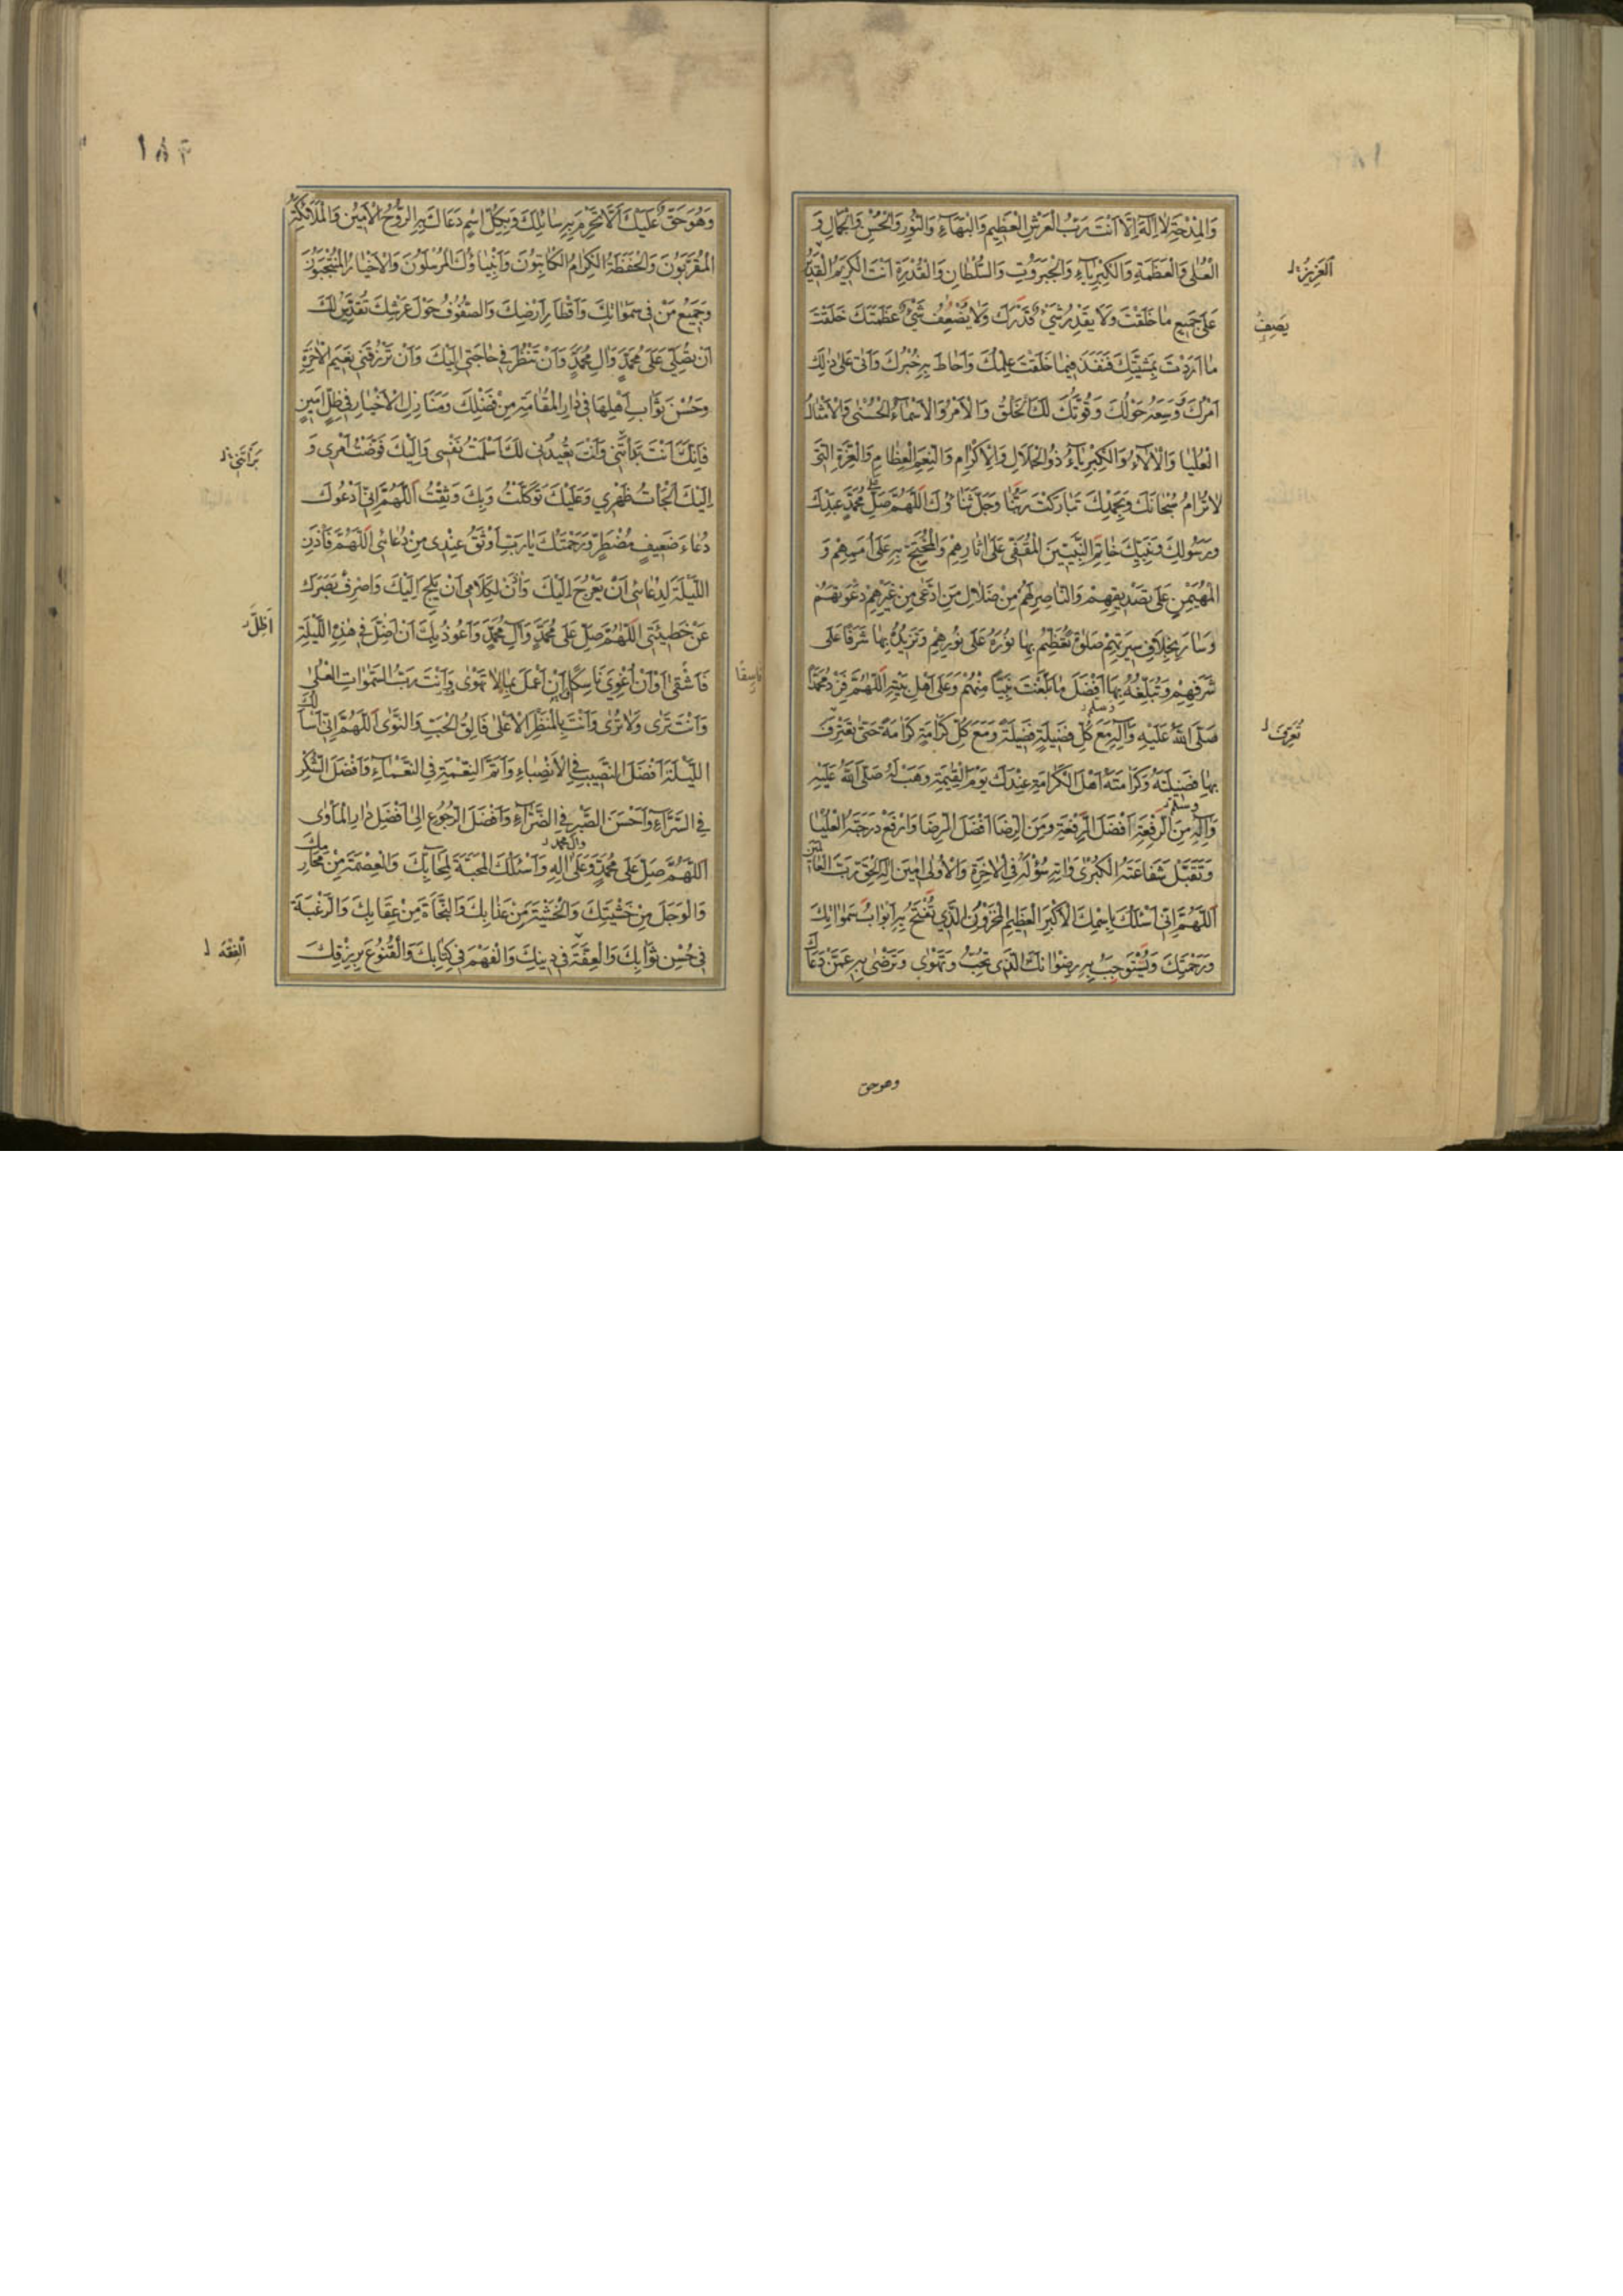 وَالْمِدْحَةِ لَا اِلٰهَ اِلَّا اَنْتَ رَبُّ الْعَرْشِ الْعَظِيمِ وَالْبَهَآءِ وَالنُّورِ وَالْحُسْنِ وَالْجَمَالِ وَ
الْعُلٰى وَالْعَظَمَةِ وَالْكِبْرِيَآءِ وَالْجَبَرُوتِ وَالسُّلْطَانِ وَالْقُدْرَةِ اَنْتَ الْكَرِيمُ الْقَدِيرُ
اَلْعَزِيزُ
عَلٰى جَمِيعِ مَا خَلَقْتَ وَلَا يَقْدِرُ شَيْءٌ قَدْرَكَ وَلَا يُضْعِفُ شَيْءٌ عَظَمَتَكَ خَلَقْتَ
يَصِفُ
مَا اَرَدْتَ بِمَشِيَّتِكَ فَنَفَذَ فِيمَا خَلَقْتَ عِلْمُكَ وَاَحَاطَ بِهِ خُبْرُكَ وَاَتٰى عَلٰى ذٰلِكَ
اَمْرُكَ وَوَسِعَهُ حَوْلُكَ وَقُوَّتُكَ لَكَ الْخَلْقُ وَالْاَمْرُ وَالْاَسْمَآءُ الْحُسْنٰى وَالْاَمْثَالُ
الْعُلْيَا وَالْاٰلَآءُ وَالْكِبْرِيَآءُ ذُو الْجَلَالِ وَالْاِكْرَامِ وَالنِّعَمِ الْعِظَامِ وَالْعِزَّةِ الَّتِي
لَا تُرَامُ سُبْحَانَكَ وَبِحَمْدِكَ تَبَارَكْتَ رَبَّنَا وَجَلَّ ثَنَاؤُكَ اَللّٰهُمَّ صَلِّ عَلٰى مُحَمَّدٍ عَبْدِكَ
وَرَسُولِكَ وَنَبِيِّكَ خَاتَمِ النَّبِيِّينَ الْمُقَفّٰى عَلٰى اٰثَارِهِمْ وَالْمُحْتَجِّ بِهِ عَلٰى اُمَمِهِمْ وَ
الْمُهَيْمِنِ عَلٰى تَصْدِيقِهِمْ وَالنَّاصِرِ لَهُمْ مِنْ ضَلَالِ مَنِ ادَّعٰى مِنْ غَيْرِهِمْ دَعْوَتَهُمْ
وَسَارَ بِخِلَافِ سِيرَتِهِمْ صَلٰوةً تُعَظِّمُ بِهَا نُورَهُ عَلٰى نُورِهِمْ وَتَزِيدُهُ بِهَا شَرَفًا عَلٰى
شَرَفِهِمْ وَتُبَلِّغُهُ بِهَا اَفْضَلَ مَا بَلَّغْتَ نَبِيًّا مِنْهُمْ وَعَلٰى اَهْلِ بَيْتِهِ اَللّٰهُمَّ فَزِدْ مُحَمَّدًا
صَلَّى اللّٰهُ عَلَيْهِ وَاٰلِهِ وسلم مَعَ كُلِّ فَضِيلَةٍ فَضِيلَةً وَمَعَ كُلِّ كَرَامَةٍ كَرَامَةً حَتّٰى تُعَرِّفَ
بِهَا فَضِيلَتَهُ وَكَرَامَتَهُ اَهْلَ الْكَرَامَةِ عِنْدَكَ يَوْمَ الْقِيٰمَةِ وَهَبْ لَهُ صَلَّى اللّٰهُ عَلَيْهِ
وَاٰلِهِ وسلم مِنَ الرِّفْعَةِ اَفْضَلَ الرِّفْعَةِ وَمِنَ الرِّضَا اَفْضَلَ الرِّضَا وَارْفَعْ دَرَجَتَهُ الْعُلْيَا
وَتَقَبَّلْ شَفَاعَتَهُ الْكُبْرٰى وَاٰتِهِ سُؤْلَهُ فِي الْاٰخِرَةِ وَالْاُولٰى اٰمِينَ اِلٰهَ الْحَقِّ رَبَّ الْعَالَمِينَ
اَللّٰهُمَّ اِنِّي اَسْئَلُكَ بِاسْمِكَ الْاَكْبَرِ الْعَظِيمِ الْمَخْزُونِ الَّذِي تُفْتَحُ بِهِ اَبْوَابُ سَمٰوَاتِكَ
وَرَحْمَتِكَ وَيُسْتَوْجَبُ بِهِ رِضْوَانُكَ الَّذِي تُحِبُّ وَتَهْوٰى وَتَرْضٰى بِهِ عَمَّنْ دَعَاكَ
وهو حق
١٨٣
وَهُوَ حَقٌّ عَلَيْكَ اَلَّا تَحْرِمَ بِهِ سَائِلَكَ وَبِكُلِّ اسْمٍ دَعَاكَ بِهِ الرُّوحُ الْاَمِينُ وَالْمَلَائِكَةُ
الْمُقَرَّبُونَ وَالْحَفَظَةُ الْكِرَامُ الْكَاتِبُونَ وَاَنْبِيَاؤُكَ الْمُرْسَلُونَ وَالْاَخْيَارُ الْمُنْتَجَبُونَ
وَجَمِيعُ مَنْ فِي سَمٰوَاتِكَ وَاَقْطَارِ اَرْضِكَ وَالصُّفُوفُ حَوْلَ عَرْشِكَ تُقَدِّسُ لَكَ
اَنْ تُصَلِّيَ عَلٰى مُحَمَّدٍ وَاٰلِ مُحَمَّدٍ وَاَنْ تَنْظُرَ فِي حَاجَتِي اِلَيْكَ وَاَنْ تَرْزُقَنِي نَعِيمَ الْاٰخِرَةِ
وَحُسْنَ ثَوَابِ اَهْلِهَا فِي دَارِ الْمُقَامَةِ مِنْ فَضْلِكَ وَمَنَازِلِ الْاَخْيَارِ فِي ظِلٍّ اَمِينٍ
فَاِنَّكَ اَنْتَ بَدَأْتَنِي وَاَنْتَ تُعِيدُنِي لَكَ اَسْلَمْتُ نَفْسِي وَاِلَيْكَ فَوَّضْتُ اَمْرِي وَ
بَرَأْتَنِي
اِلَيْكَ اَلْجَأْتُ ظَهْرِي وَعَلَيْكَ تَوَكَّلْتُ وَبِكَ وَثِقْتُ اَللّٰهُمَّ اِنِّي اَدْعُوكَ
دُعَاءَ ضَعِيفٍ مُضْطَرٍّ وَرَحْمَتُكَ يَا رَبِّ اَوْثَقُ عِنْدِي مِنْ دُعَائِي اَللّٰهُمَّ فَأْذَنِ
اللَّيْلَةَ لِدُعَائِي اَنْ يَعْرُجَ اِلَيْكَ وَأْذَنْ لِكَلَامِي اَنْ يَلِجَ اِلَيْكَ وَاصْرِفْ بَصَرَكَ
عَنْ خَطِيئَتِي اَللّٰهُمَّ صَلِّ عَلٰى مُحَمَّدٍ وَاٰلِ مُحَمَّدٍ وَاَعُوذُ بِكَ اَنْ اَضِلَّ فِي هٰذِهِ اللَّيْلَةِ
فَاَشْقٰى اَوْ اَنْ اُغْوِيَ نَاسِكًا اَوْ اَنْ اَعْمَلَ بِمَا لَا تَهْوٰى وَاَنْتَ رَبُّ السَّمٰوَاتِ الْعُلٰى
وَاَنْتَ تَرٰى وَلَا تُرٰى وَاَنْتَ بِالْمَنْظَرِ الْاَعْلٰى فَالِقُ الْحَبِّ وَالنَّوٰى اَللّٰهُمَّ اِنِّي اَسْاَلُكَ
اللَّيْلَةَ اَفْضَلَ النَّصِيبِ فِي الْاَنْصِبَاءِ وَاَتَمَّ النِّعْمَةِ فِي النَّعْمَاءِ وَاَفْضَلَ الشُّكْرِ
فِي السَّرَّآءِ وَاَحْسَنَ الصَّبْرِ فِي الضَّرَّآءِ وَاَفْضَلَ الرُّجُوعِ اِلٰى اَفْضَلِ دَارِ الْمَاْوٰى
وآل محمد
اَللّٰهُمَّ صَلِّ عَلٰى مُحَمَّدٍ وَعَلٰى اٰلِهِ وَاَسْئَلُكَ الْمَحَبَّةَ لِمَحَابِّكَ وَالْعِصْمَةَ مِنْ مَحَارِمِكَ
وَالْوَجَلَ مِنْ خَشْيَتِكَ وَالْخَشْيَةَ مِنْ عَذَابِكَ وَالنَّجَاةَ مِنْ عِقَابِكَ وَالرَّغْبَةَ
فِي حُسْنِ ثَوَابِكَ وَالْعِفَّةَ فِي دِينِكَ وَالْفَهْمَ فِي كِتَابِكَ وَالْقُنُوعَ بِرِزْقِكَ
اَلْفِقْهَ